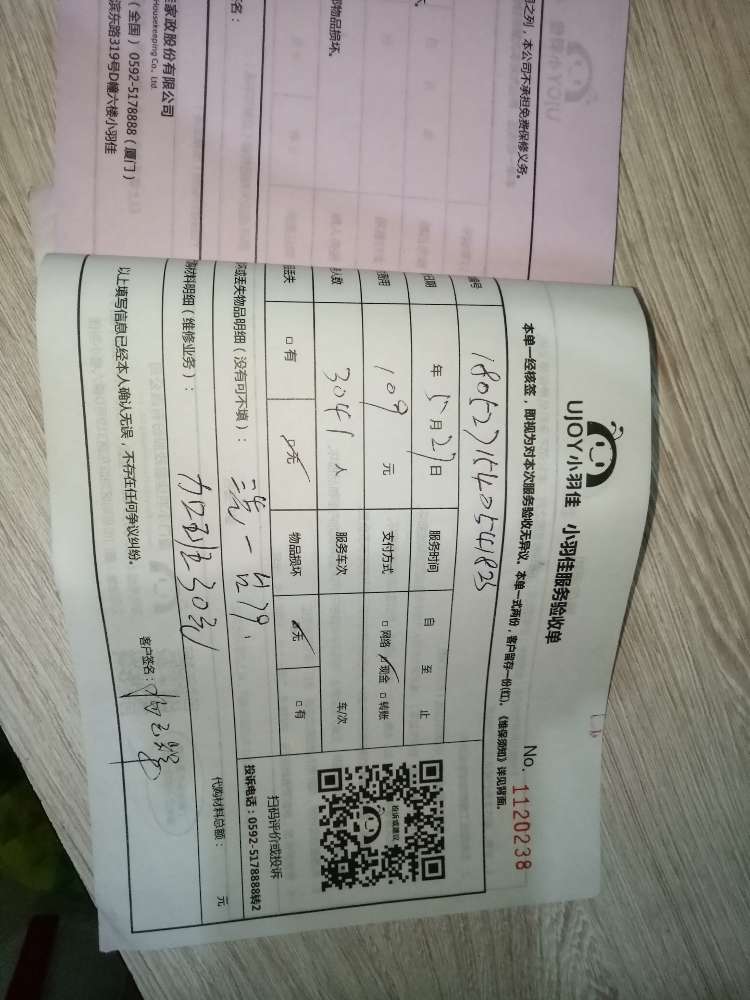 UJOY小羽佳 小羽佳服务验收单
No. 1120238
本单一经核签，即视为对本次服务验收无异议。本单一式两份，客户留存一份(红)。《维保须知》详见背面。
编号 180527154054182
日期 年 5月27日 服务时间 自 至 止
费用 109 元 支付方式 □ 网络 □ 现金 □ 转账
人数 3041 人 服务车次 车/次
丢失 □ 有 □ 无 物品损坏 □ 无 □ 有
坏或丢失物品明细（没有可不填）：
洗一
购材料明细（维修业务）：
加利王30元
代购材料总额： 元
以上填写信息已经本人确认无误，不存在任何争议纠纷。
客户签名：
投诉或建议
扫码评价或投诉
投诉电话：0592-5178888转2
之列，本公司不承担免费保修义务。
部物品损坏。
名：
家政股份有限公司
Housekeeping Co., Ltd.
（全国）0592-5178888（厦门）
滨东路319号D幢六楼小羽佳